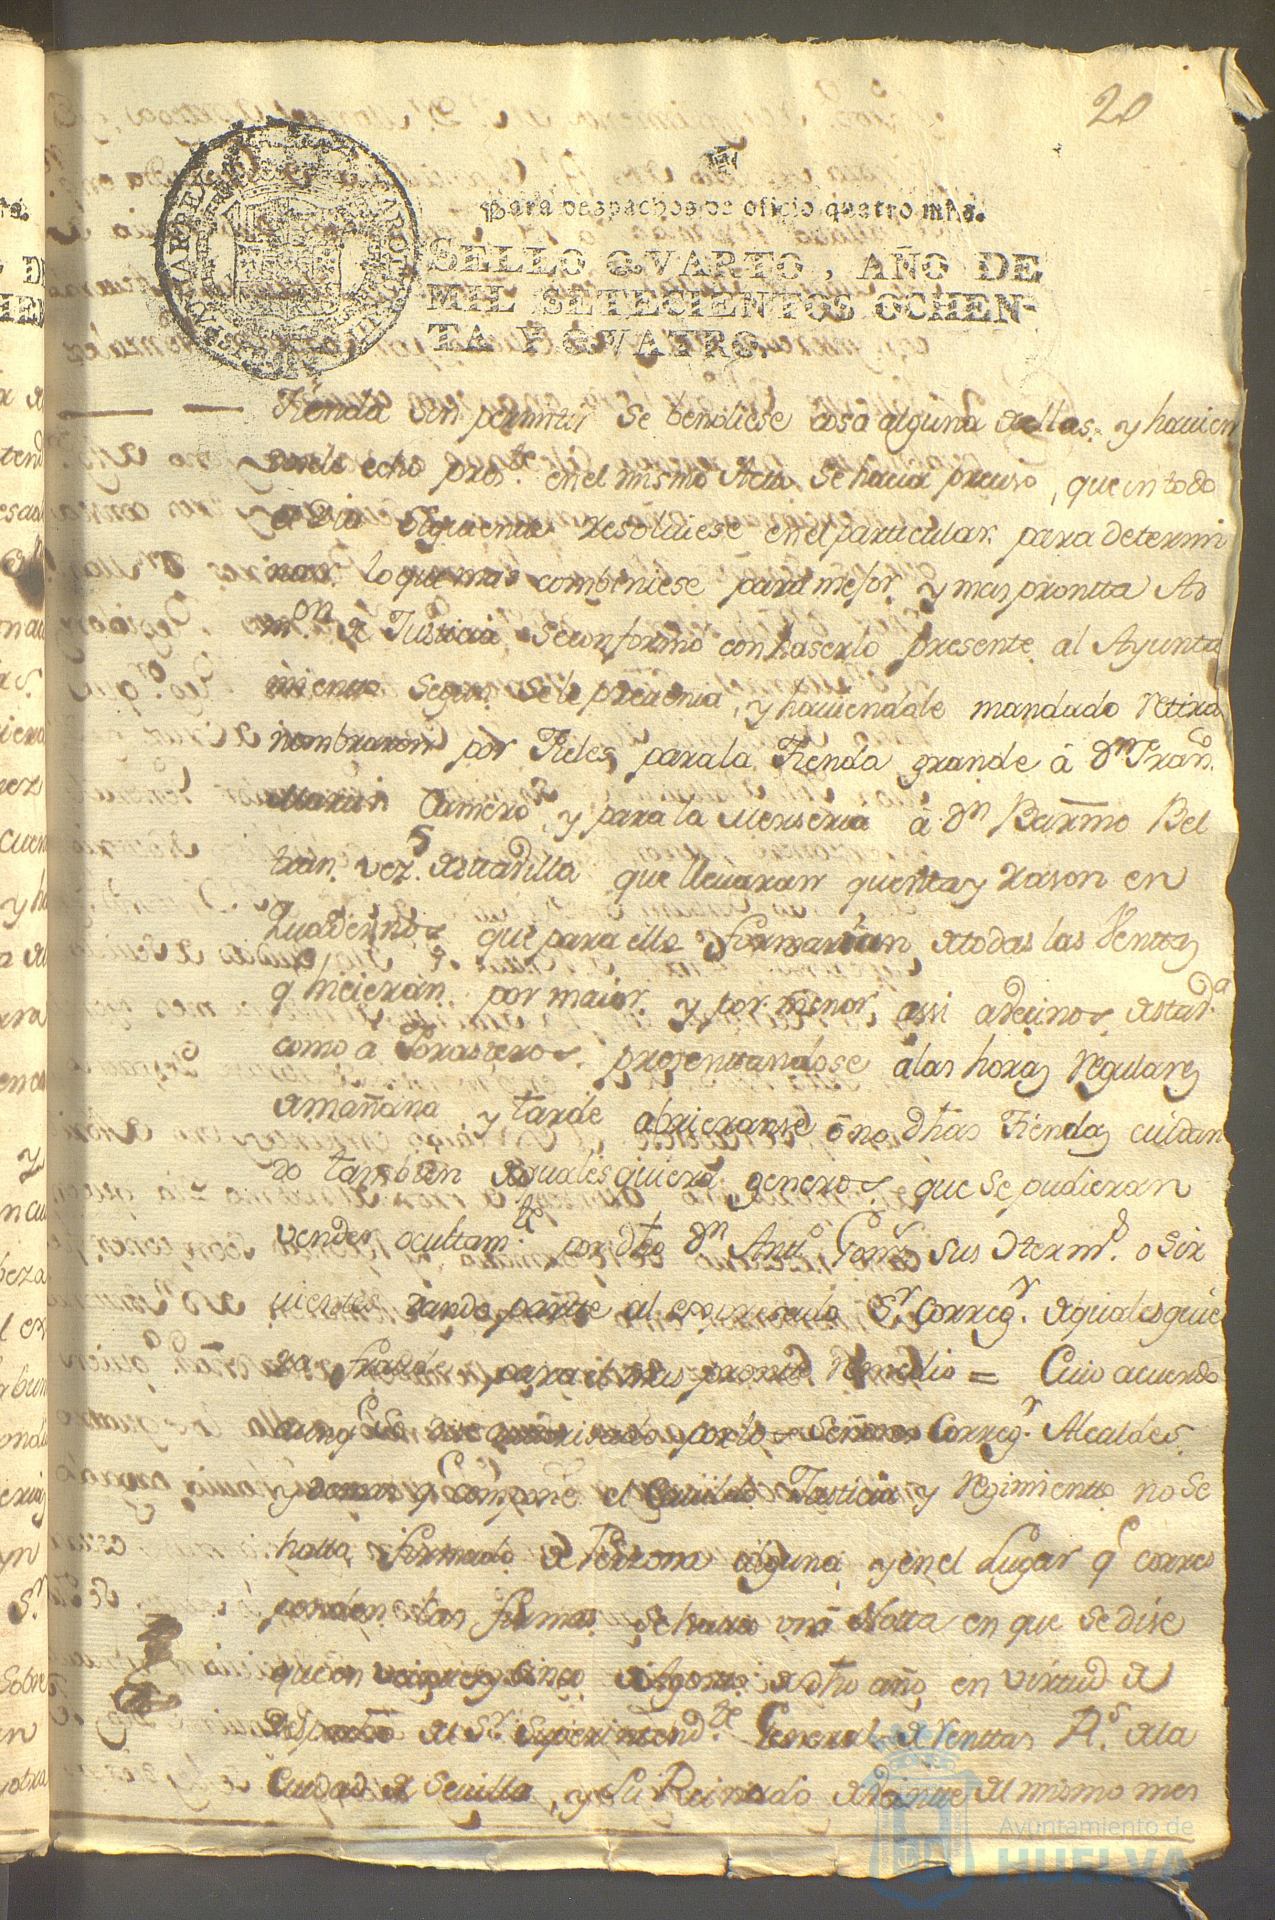 20
Para despachos de oficio quatro mrs.
SELLO QVARTO, AÑO DE
MIL SETECIENTOS OCHEN-
TA Y QVATRO.
Tienda sin permitir se bendiese cosa alguna dellas, y havien
dorlo echo pres.te en el mismo Acto se hacia preciso, que en todo
el Dia siguiente resolviese en el particular para determi
nar lo que mas combeniese para mejor y mas prontta Ad
m.on de Justicia, se conformó con haserlo presente al Ayunta
miento segun se le prevenia, y haviendole mandado retirar
nombraron por Fieles para la Tienda grande á Dn Fran.co
Martin Camero, y para la Merseria á Dn Barmo Bel
tran vez.s de esta Villa que llevaran quenta y rason en
Quadernos que para ello formarian de todas las Venttas
q hicieran por maior y por menor, assi a Vecinos de esta d.a
como a Forasteros presentandose a las horas regulares
de mañana y tarde abrieranse ó no dhas Tiendas cuidan
do tambien de qualesquiera generos que se pudieran
vender ocultam.te por dho Dn Antt.o sus o sir
vientes dando partte al expresado S.r Correg.r de qualesquie
ra fraude para el mas prontto remedio = Cuio acuerdo
aunq esta por los Señores Correg.r Alcaldes
y demas q compone el Cavildo Justicia y regimiento no se
halla firmado de Perzona alguna, y en el Lugar q corres
ponden las firmas se halla una Notta en que se dise
que en veinte y sinco de Agosto de dho año en virtud de
Despacho del S.r Superintend.te General de Renttas R.s de la
Ciudad de Sevilla, y su Reinado de veinte del mismo mes
Ayuntamiento de
HUELVA